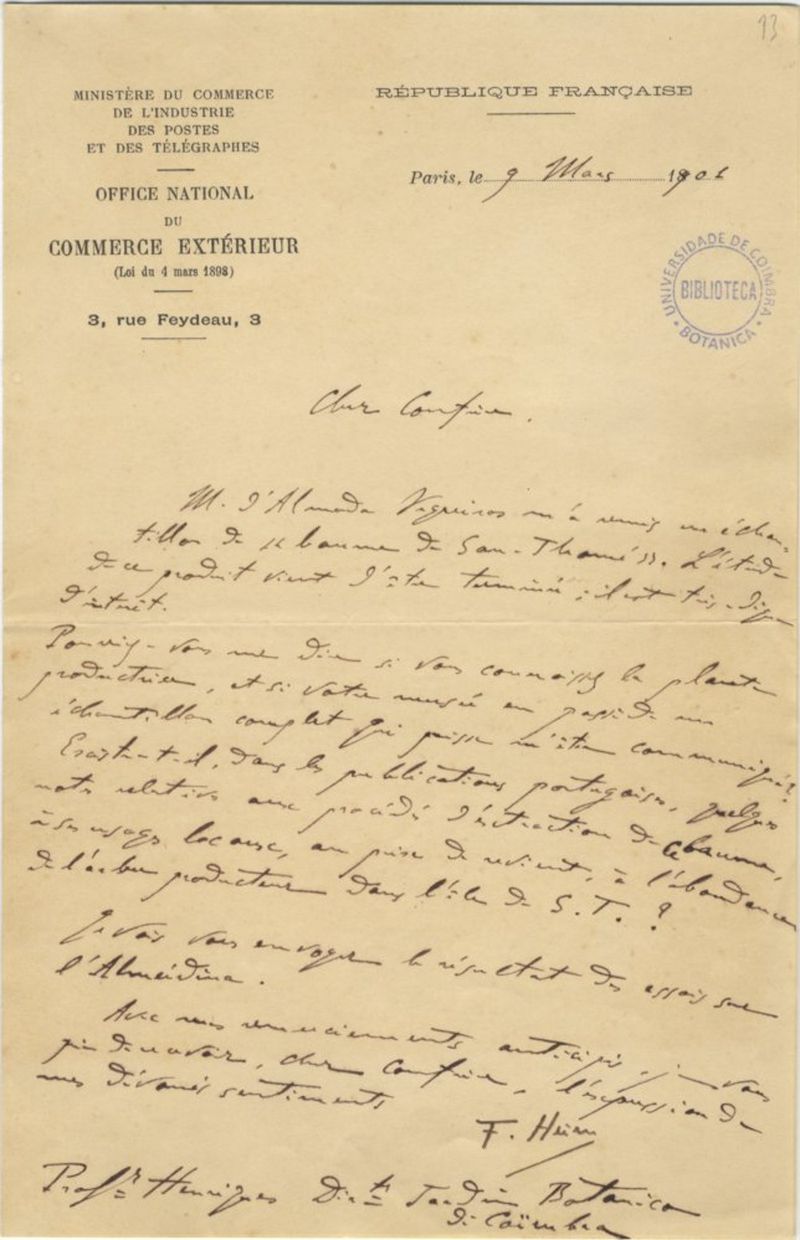 93
MINISTÈRE DU COMMERCE
DE L'INDUSTRIE
DES POSTES
ET DES TÉLÉGRAPHES
OFFICE NATIONAL
DU
COMMERCE EXTÉRIEUR
(Loi du 4 mars 1898)
3, rue Feydeau, 3
RÉPUBLIQUE FRANÇAISE
Paris, le 9 Mars 1901
UNIVERSIDADE DE COIMBRA
BIBLIOTECA
BOTANICA
Cher Confrère,
M. d'Almada Negreiros m'a remis un échan-
tillon de baume de San-Thomé. L'étude
de ce produit vient d'être terminée ; il est très digne
d'intérêt.
Pouvez-vous me dire si vous connaissez la plante
productrice, et si votre musée en possède un
échantillon complet qui puisse m'être communiqué ?
Existe-t-il, dans les publications portugaises, quelques
notes relatives aux procédés d'extraction de ce baume,
à ses usages locaux, au prix de revient, à l'abondance
de l'arbre producteur dans l'île de S. T. ?
Je vais vous envoyer le résultat des essais sur
l'Alméidina.
Avec mes remerciements anticipés, je vous
prie de recevoir, cher Confrère, l'expression de
mes dévoués sentiments
F. Heim
Profr Henriques Dirt Jardin Botanico
di Coïmbra